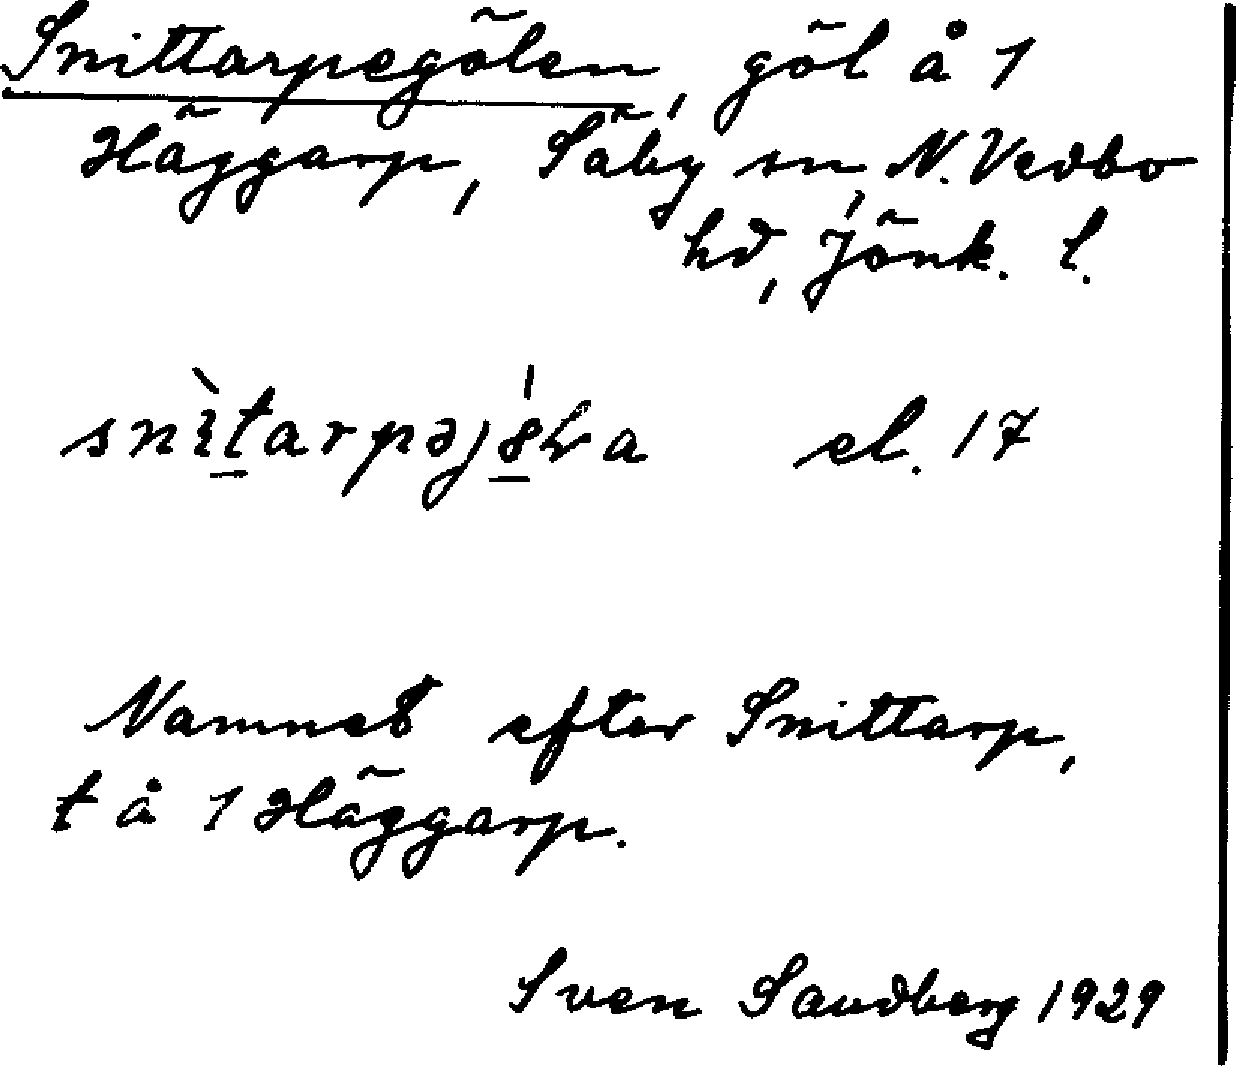 Snittarpegölen, göl å 1
Häggarp, Säby sn, N. Vedbo
hd, Jönk. l.
el. 17
Namnet efter Snittarp,
t å 1 Häggarp.
Sven Sandberg 1929